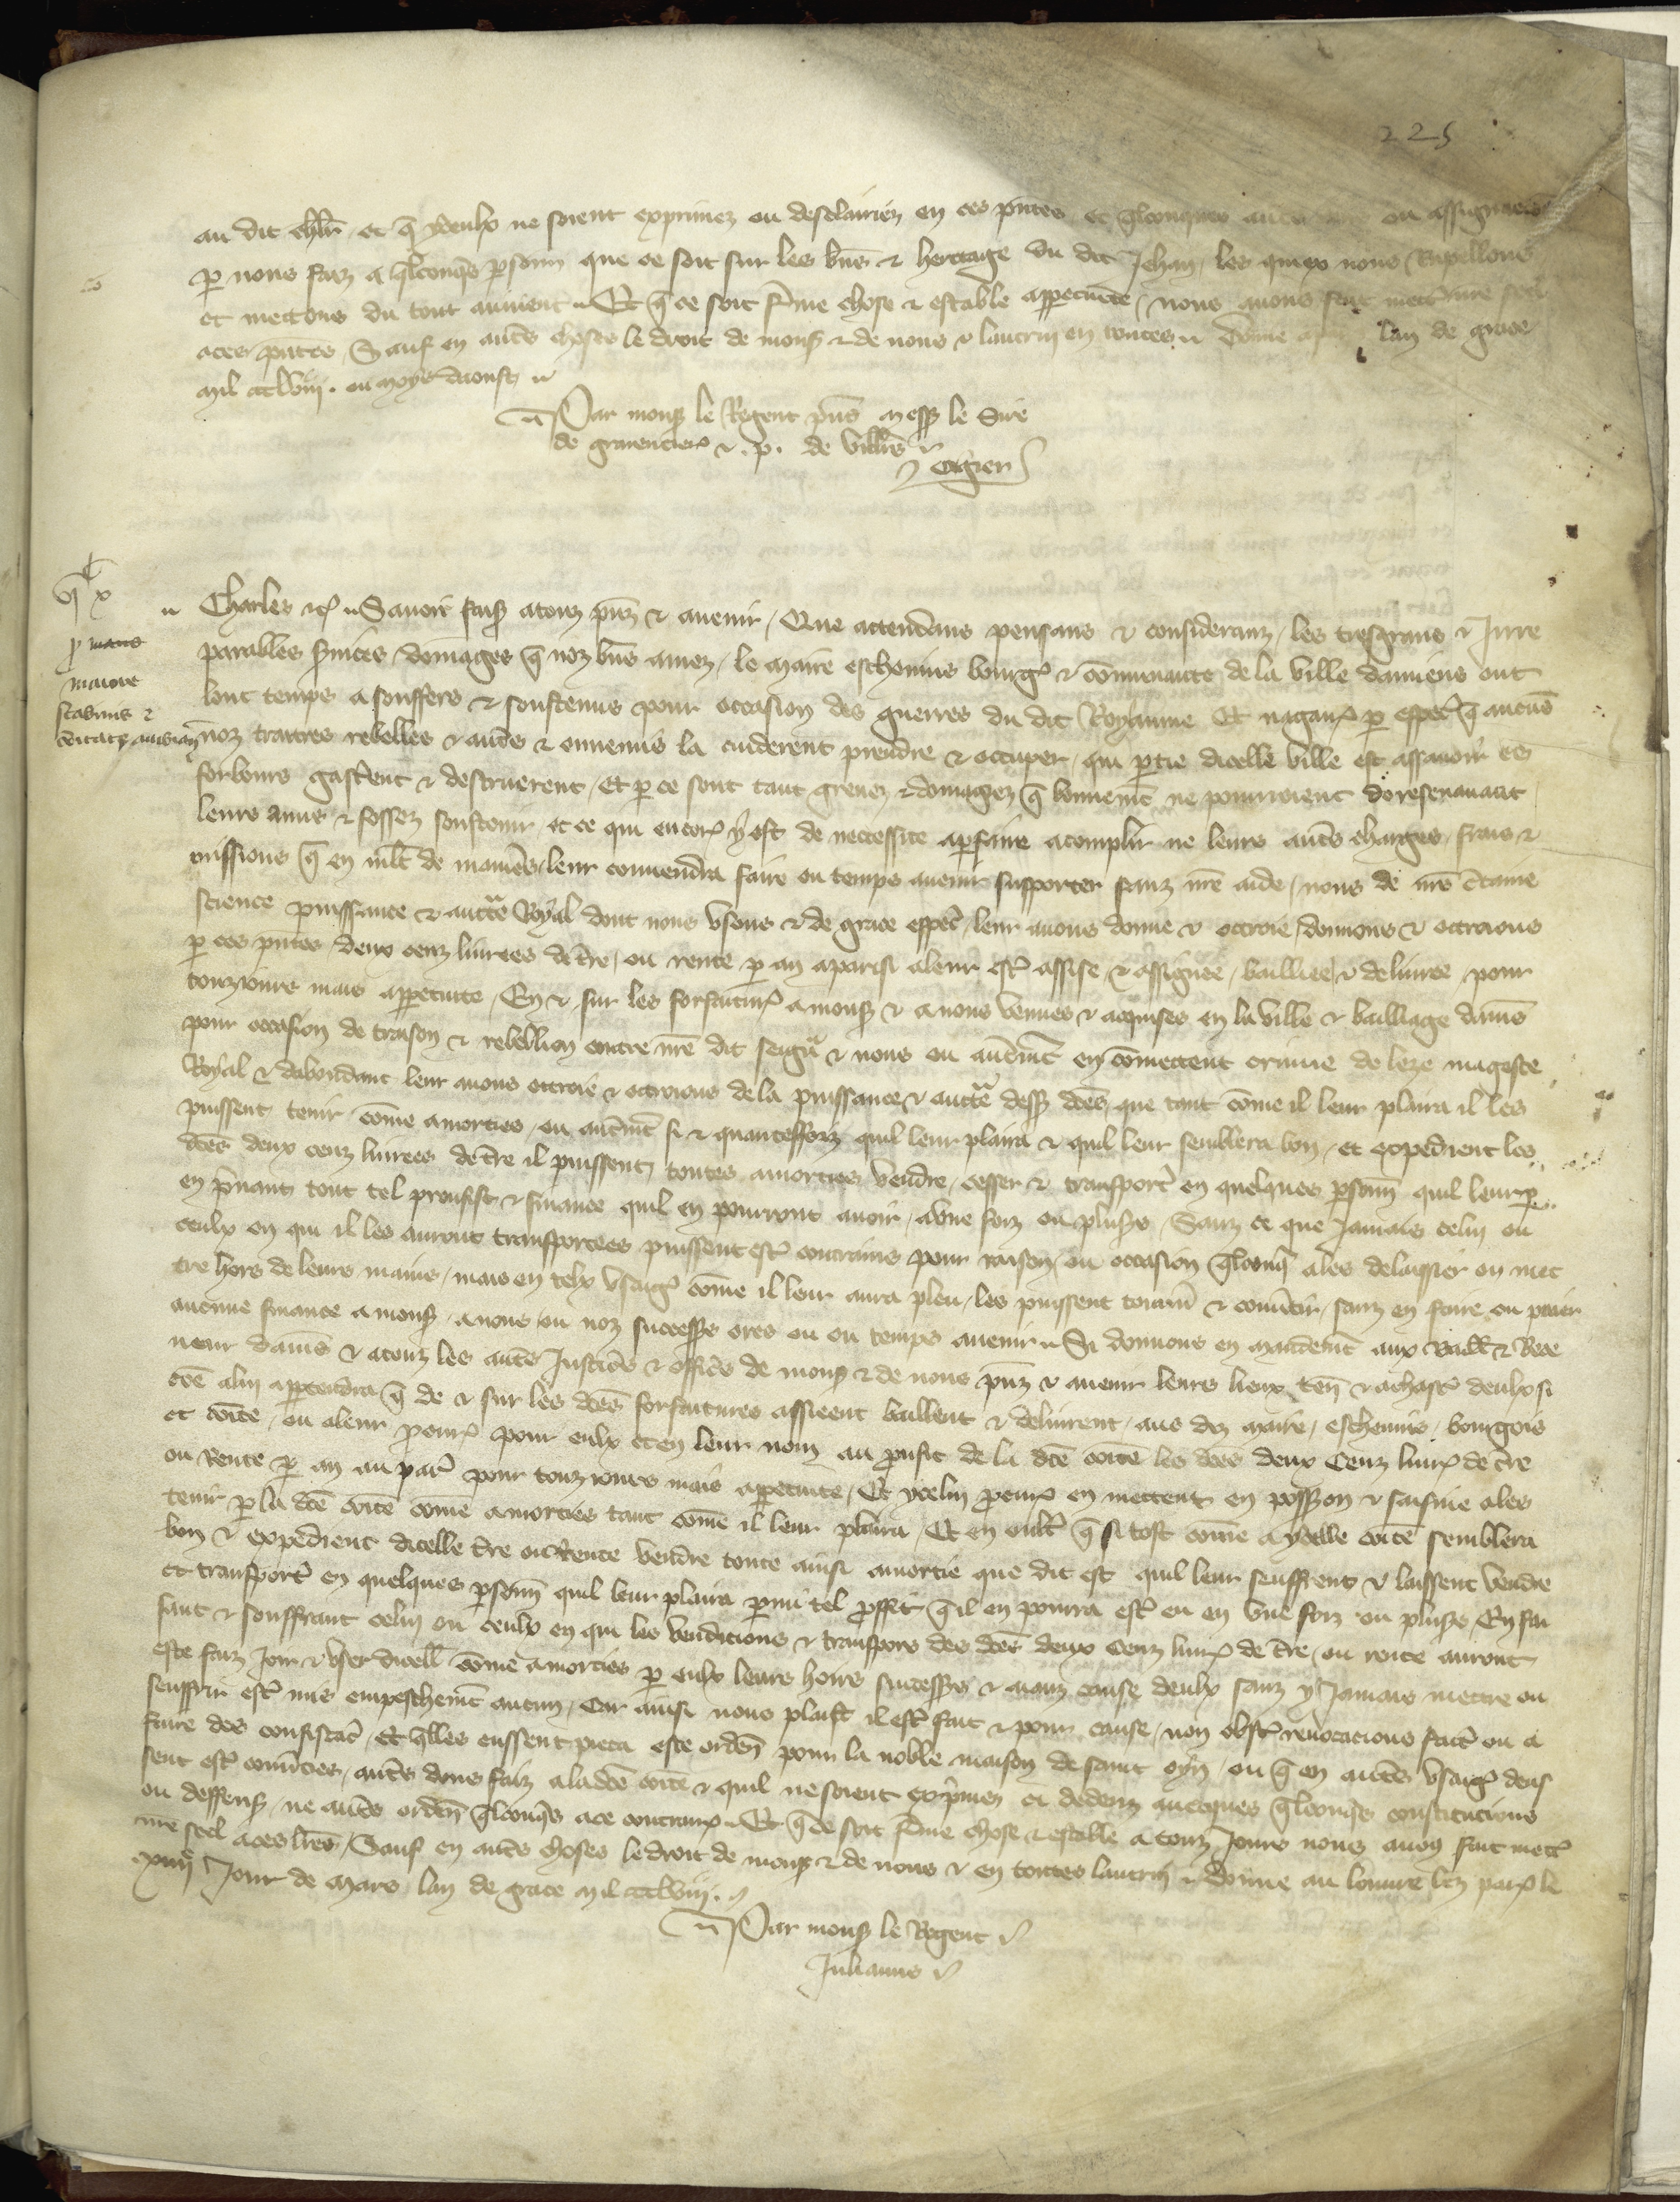 225
au dit chlr et q̄ yceulx ne soient exprimez ou desclairiez en ces pñtes et qlconques ou assignacions
p nous faiz a qlconqs psonn que ce soit sur les biēs & heritage du dit Jehan, les quiex nous Rapellons
et mettons du tout au nient .. Et q̄ ce soit fme chose & estable a ppetuite, nous avons fait mettre nre scel
a ces pñtes Sauf en autes choses le droit de mons & de nous & lautrui en toutes .. Donne a lan de grace
mil ccclviij. ou moys daoust ..
Par mons le Regent pñs mess le Sire
de & .p. de vills
Ogier
vj x
p
maiore
scabinis &
Charles &c .. Savoir fais a touz pñz & avenir, Que attendans pensans & considerans, les tresgrans & Irre
parables domages q̄ noz bñs amez, le Maire eschevins bourgs & cōmunaute de la ville damiens ont
lonc temps a souffers & soustenus pour occasion des guerres du dit Royaume Et nagaures p espēl q̄ aucuns
noz traitres rebelles & autes & ennemis la cuiderent prendre & occuper, qui ptie dicelle ville est assavoir les
forbours gasterent & destruerent, Et p ce sont tant grevez & domagez q̄ bonnemēt ne pourroient doresenavant
leurs murs & fossez soustenir, et ce qui encores y est de necessite a pfaire acomplir ne leurs autes charges, frais &
missions q̄ en mlt de manies, leur convendra faire ou temps avenir supporter sanz nre aide, nous de nre ctaine
science puissance & auctte Royal dont nous usons & de grace espēl, leur avons donne & octroie, donnons & octroions
p ces pñtes deux cenz livrees de tre, ou rente p an a parisi a leur estre assise & assignee, bailliee & delivree, pour
touzjours mais a ppetuite, En & sur les forfaitures a mons & a nous venues & acquises en la ville & bailliage damiēs
pour occasion de traison & rebellion contre nre dit seigr & nous ou autremt en cōmettent crime de leze mageste
Royal & dabondant leur avons octroie & octroions de la puissance & auctte dess dces, que tant cōme il leur plaira il les
puissent tenir cōme amorties, ou autmt si & quantesfoiz quil leur plaira & quil leur semblera bon, et expedient les
dces deux cenz livrees de tre il puissent, toutes amorties vendre, cesser & transporter en quelques psonn quil leur
en pnant tout tel proufist & finance quil en pourront avoir, a une foiz ou plusrs, Sanz ce que Jamais celui ou
ceulx en qui il les auront transportees puissent estre contrains pour raison, ou occasion qlconq a les delaissier ou met
tre hors de leurs mains, mais en telx usages cōme il leur aura pleu, les puissent tourner & convertir, sanz en faire ou paier
aucune finance a mons, a nous ou noz successrs ores ou ou temps avenir .. Si donnons en mandemt aux Bailli & Rece
veur damiēs & a touz les autes Justiciers & officiers de mons & de nous pñz & avenir leurs lieux ten & a chascun deulx si
cōe a lui appartendra q̄ de & sur les dces forfaitures assieent baillent & delivrent, aus diz maire, eschevins, bourgois
et cōite, ou a leur pcur pour eulx et en leur nom au prufit de la dce cōite les dces deux Cenz livrs de tre
ou Rente p an au paris pour touz jours mais a ppetuite, Et ycelui pcur en mettent en possion & saisine a les
tenir p la dce cōite come amorties tant cōme il leur plaira, Et en oultre q̄ si tost cōme a ycelle cōite semblera
bon & expedient dicelle tre ou Rente vendre toute ainsi amortie que dit est quil leur seuffrent & laissent vendre
et transporter en quelques psonn quil leur plaira pmi tel proffit q̄ il en pourra estre eu en une foiz ou plusrs, En fai
sant & souffrant celui ou ceulx en qui les vendicions & transpors des dces deux Cenz livrs de tre, ou rente auront
este faiz Joir & user dicell cōme amorties p eulx leurs hoirs successrs & aianz cause deulx sanz y Jamais mettre ou
seuffrir estre mis empeschemt aucun, Car ainsi nous plaist il estre fait & pour cause, non obstant revocacions faictes ou a
faire des confiscacions, Et qlles eussent pieca este ordenees pour la noble maison de saint oyn, ou q̄ en autes usages deus
sent estre converties, autes dons faiz a la dce cōite & quil ne soient exprimez ci dedenz aucques qlconqs constitucions
ou deffenses, ne autes orden qlconqs a ce contraires .. Et q̄ ce soit fme chose & estable a touz Jours nous avons fait mettre
nre scel a ces lres, Sauf en autes choses le droit de mons & de nous & en toutes lautrui .. Donne au louvre lez paris le
xiiij Jour de Mars lan de grace mil ccclviij. ..
Par mons le Regent ..
Julianus ..